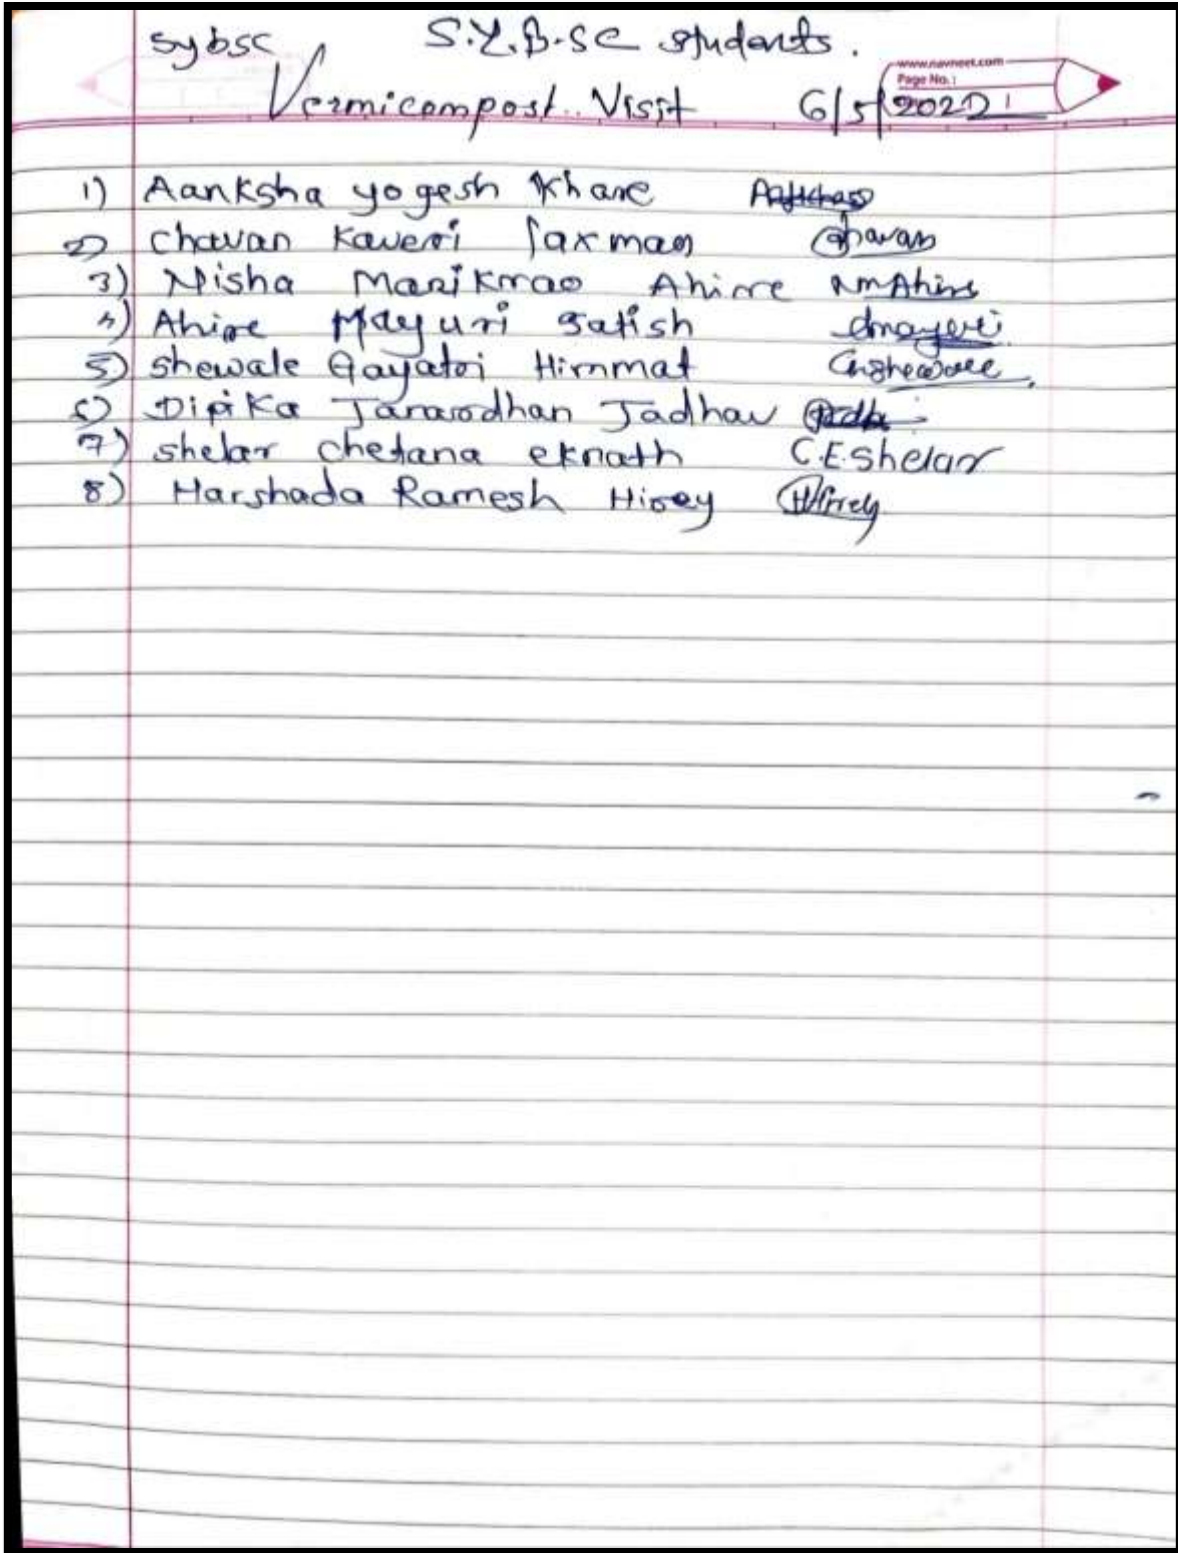 sybsc S.Y.B.SC students.
www.navneet.com
Page No.:
Vermicompost Visit 6/5/2022
1) Aanksha yogesh Khare
2) chavan Kaveri laxman Chavan
3) Nisha Manikrao Ahirre NmAhire
4) Ahire Mayuri satish
5) shewale Gayatri Himmat Gshewale
6) Dipika Janarodhan Jadhav
7) shelar chetana eknath C.E.Shelar
8) Harshada Ramesh Hirey Hirey